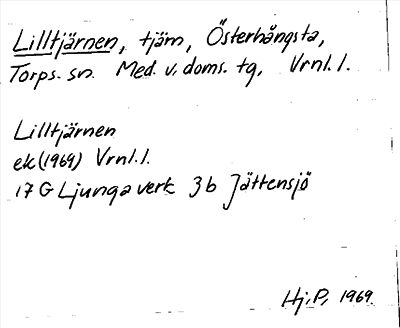 Lilltjärnen, tjärn, Österhångsta,
Torps. sn. Med. v. doms. tg, Vrnl. l.
Lilltjärnen
ek (1969) Vrnl. l.
17 G Ljungaverk 3 b Jättensjö
Hj. P, 1969.